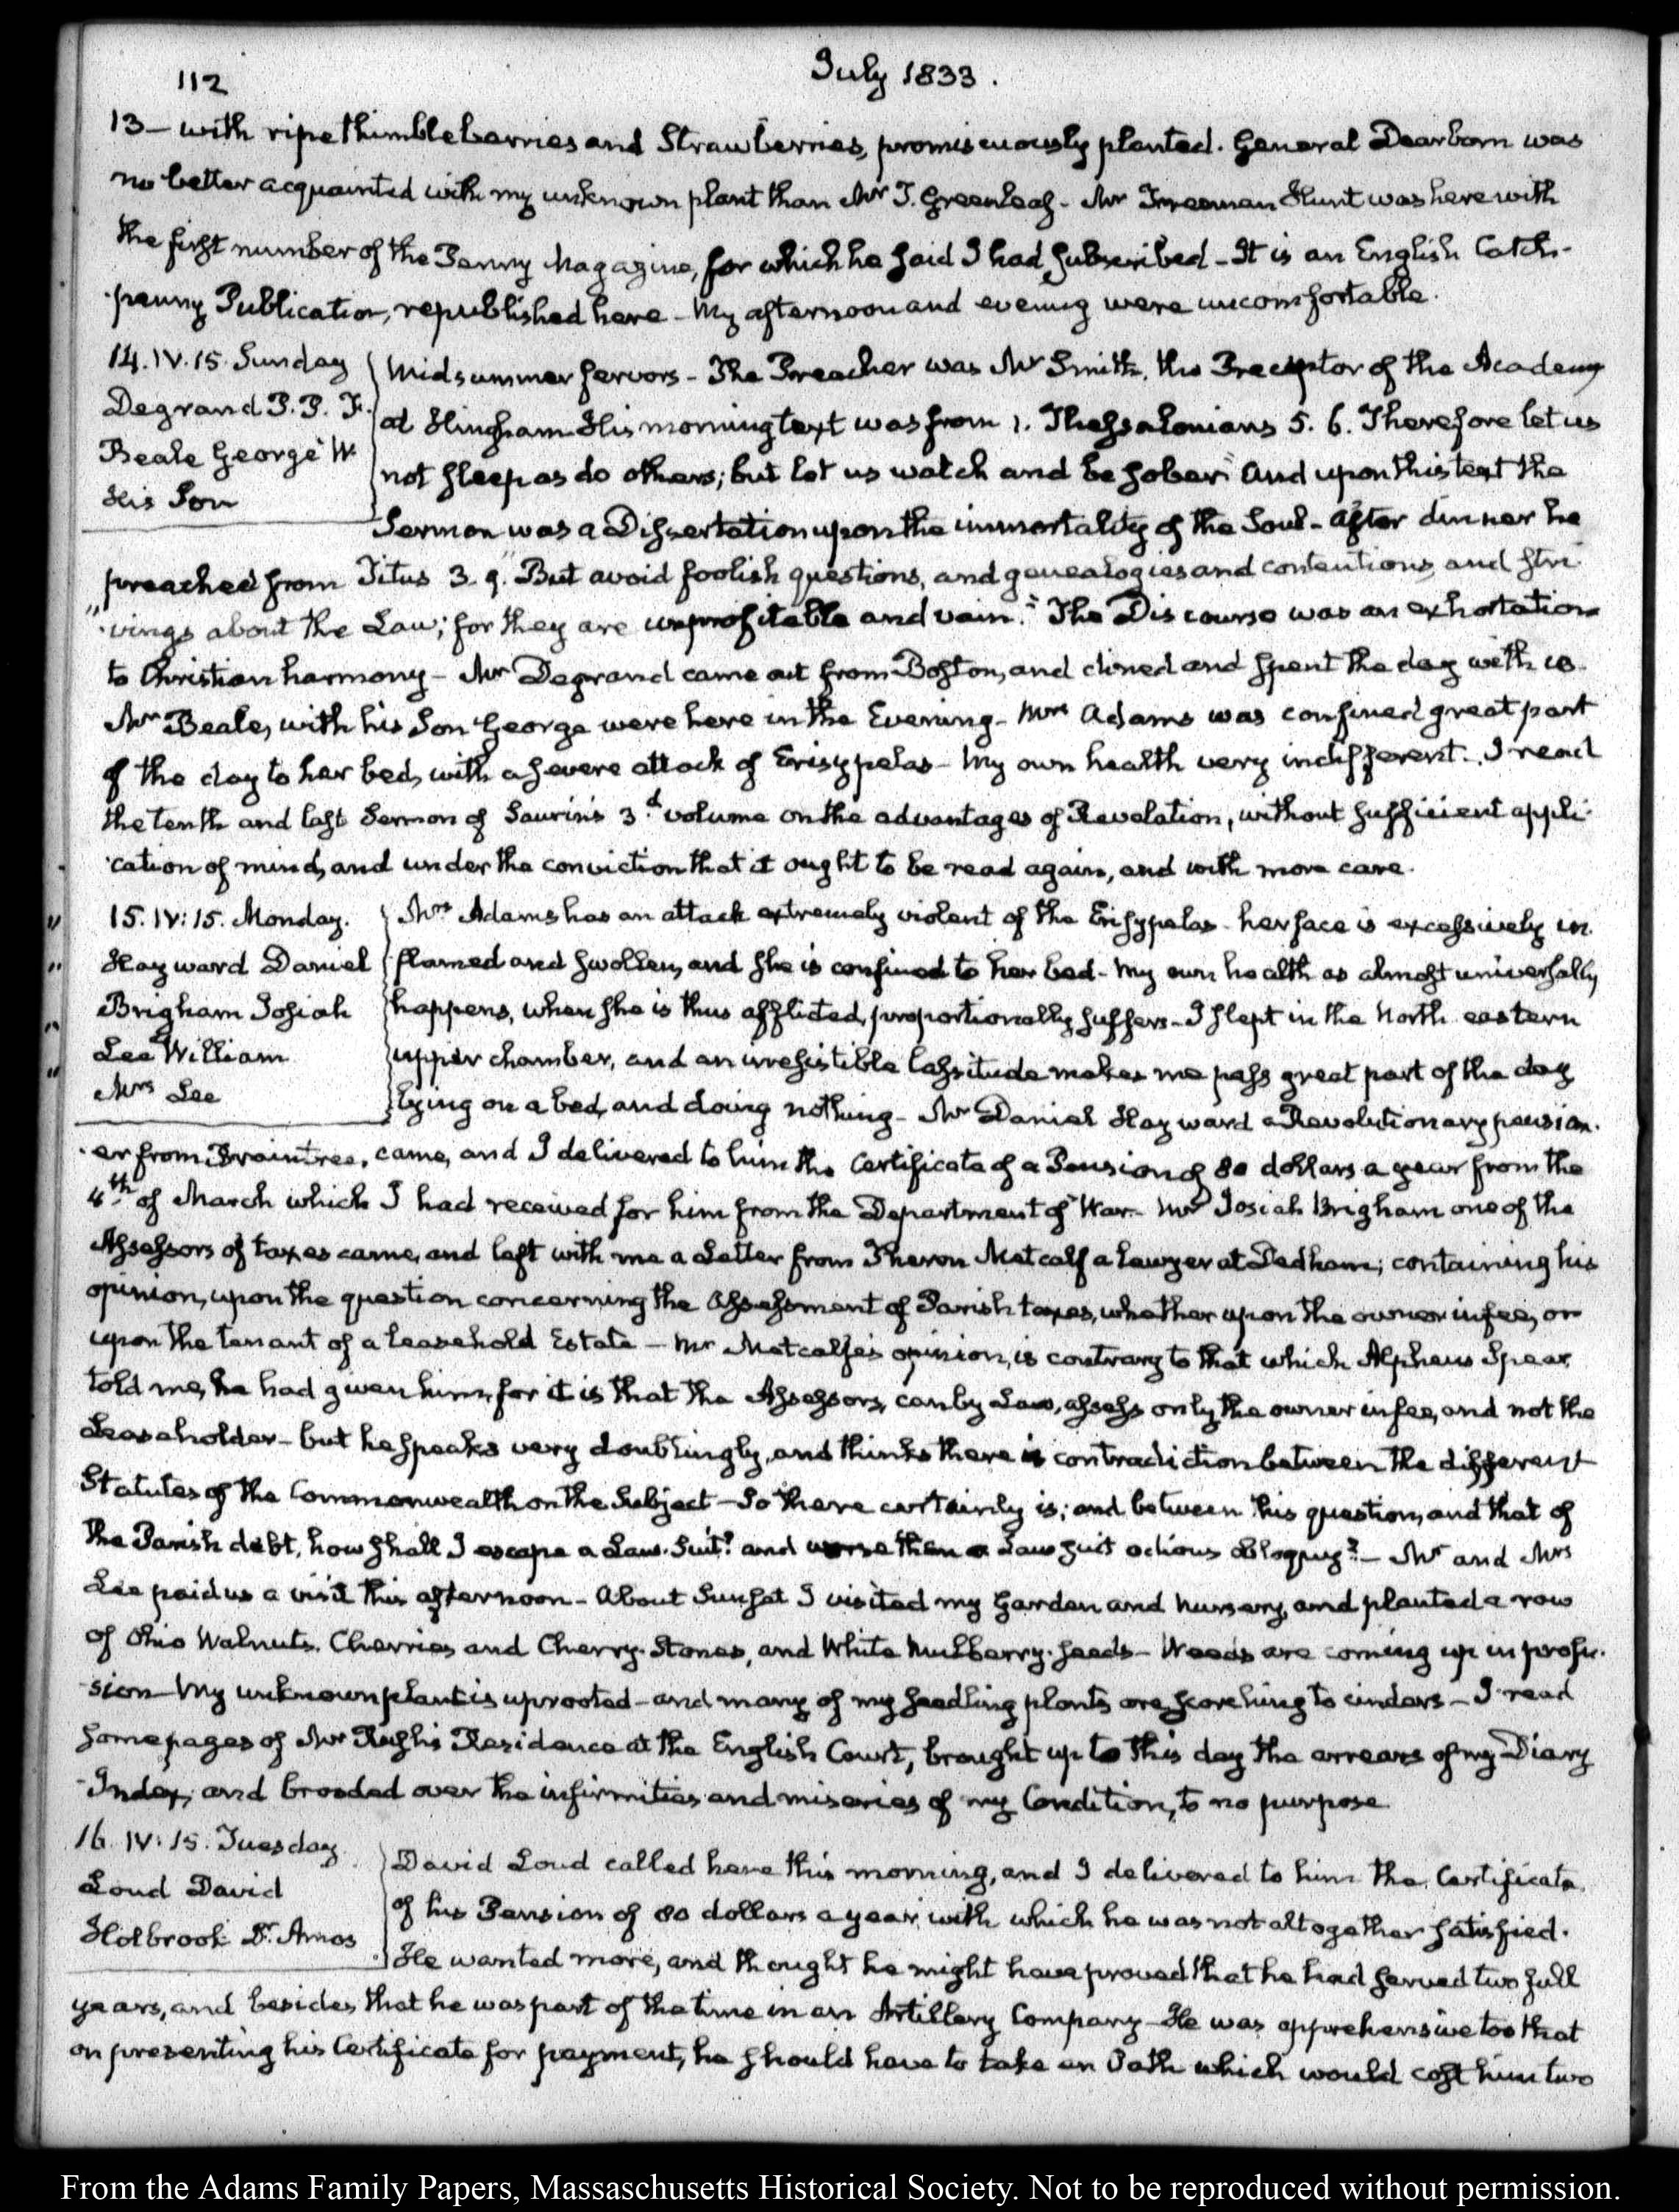 112
July 1833.
13— with ripe thimbleberries and Strawberries, promiscuously planted. General Dearborn was
no better acquainted with my unknown plant than Mr T. Greenleaf— Mr Freeman Hunt was here with
the first number of the Penny Magazine, for which he said I had subscribed— It is an English Catch-
penny Publication, republished here— My afternoon and evening were uncomfortable.
14. IV.15. Sunday
Degrand P. P. F.
Beale George W.
His Son
Midsummer fervors— The Preacher was Mr Smith, the Preceptor of the Academy
at Hingham. His morning text was from 1. Thessalonians 5. 6. Therefore let us
not sleep as do others; but let us watch and be sober" And upon this text the
Sermon was a Dissertation upon the immortality of the Soul— After dinner he
preached from Titus 3. 9. "But avoid foolish questions, and genealogies and contentions, and stri
"vings about the Law; for they are unprofitable and vain." The Discourse was an exhortation
to Christian harmony— Mr Degrand came out from Boston, and dined and spent the day with us.
Mr Beale, with his Son George were here in the Evening— Mrs Adams was confined great part
of the day to her bed, with a severe attack of Erisypelas— My own health very indifferent. I read
the tenth and last Sermon of Saurin's 3d volume on the advantages of Revelation, without sufficient appli-
cation of mind, and under the conviction that it ought to be read again, and with more care.
15. IV:15. Monday.
Hayward Daniel
Brigham Josiah
Lee William
Mrs Lee
Mrs Adams has an attack extremely violent of the Erisypelas— her face is excessively in-
flamed and swollen, and she is confined to her bed— My own health as almost universally
happens, when she is thus afflicted, proportionally suffers— I slept in the North eastern
upper chamber, and an irresistible lassitude makes me pass great part of the day
lying on a bed, and doing nothing— Mr Daniel Hayward a Revolutionary pension-
er from Braintree, came, and I delivered to him the Certificate of a Pension of 80 dollars a year from the
4th of March which I had received for him from the Department of War— Mr Josiah Brigham one of the
Assessors of taxes came, and left with me a Letter from Theron Metcalf a Lawyer at Dedham; containing his
opinion, upon the question concerning the Assessment of Parish taxes, whether upon the owner in fee, or
upon the tenant of a leasehold Estate— Mr Metcalfe's opinion, is contrary to that which Alpheus Spear
told me, he had given him, for it is that the Assessors, can by Law, assess only the owner in fee, and not the
Leaseholder— but he speaks very doubtingly, and thinks there is contradiction between the different
Statutes of the Commonwealth on the Subject— So there certainly is; and between this question, and that of
the Parish debt, how shall I escape a Law-Suit? and worse than a Law suit odious obloquy?— Mr and Mrs
Lee paid us a visit this afternoon— About Sunset I visited my Garden and Nursery, and planted a row
of Ohio Walnuts, Cherries and Cherry-Stones, and White Mulberry-seeds— Weeds are coming up in profu-
sion— My unknown plant is uprooted— and many of my seedling plants are scorching to cinders— I read
some pages of Mr Rush's Residence at the English Court, brought up to this day the arrears of my Diary
-Index, and brooded over the infirmities and miseries of my Condition, to no purpose.
16. IV:15. Tuesday.
Loud David
Holbrook Dr. Amos
David Loud called here this morning, and I delivered to him the Certificate
of his Pension of 80 dollars a year, with which he was not altogether satisfied.
He wanted more, and thought he might have proved that he had served two full
years, and besides that he was part of the time in an Artillery Company— He was apprehensive too that
on presenting his Certificate for payment, he should have to take an Oath which would cost him two
From the Adams Family Papers, Massachusetts Historical Society. Not to be reproduced without permission.